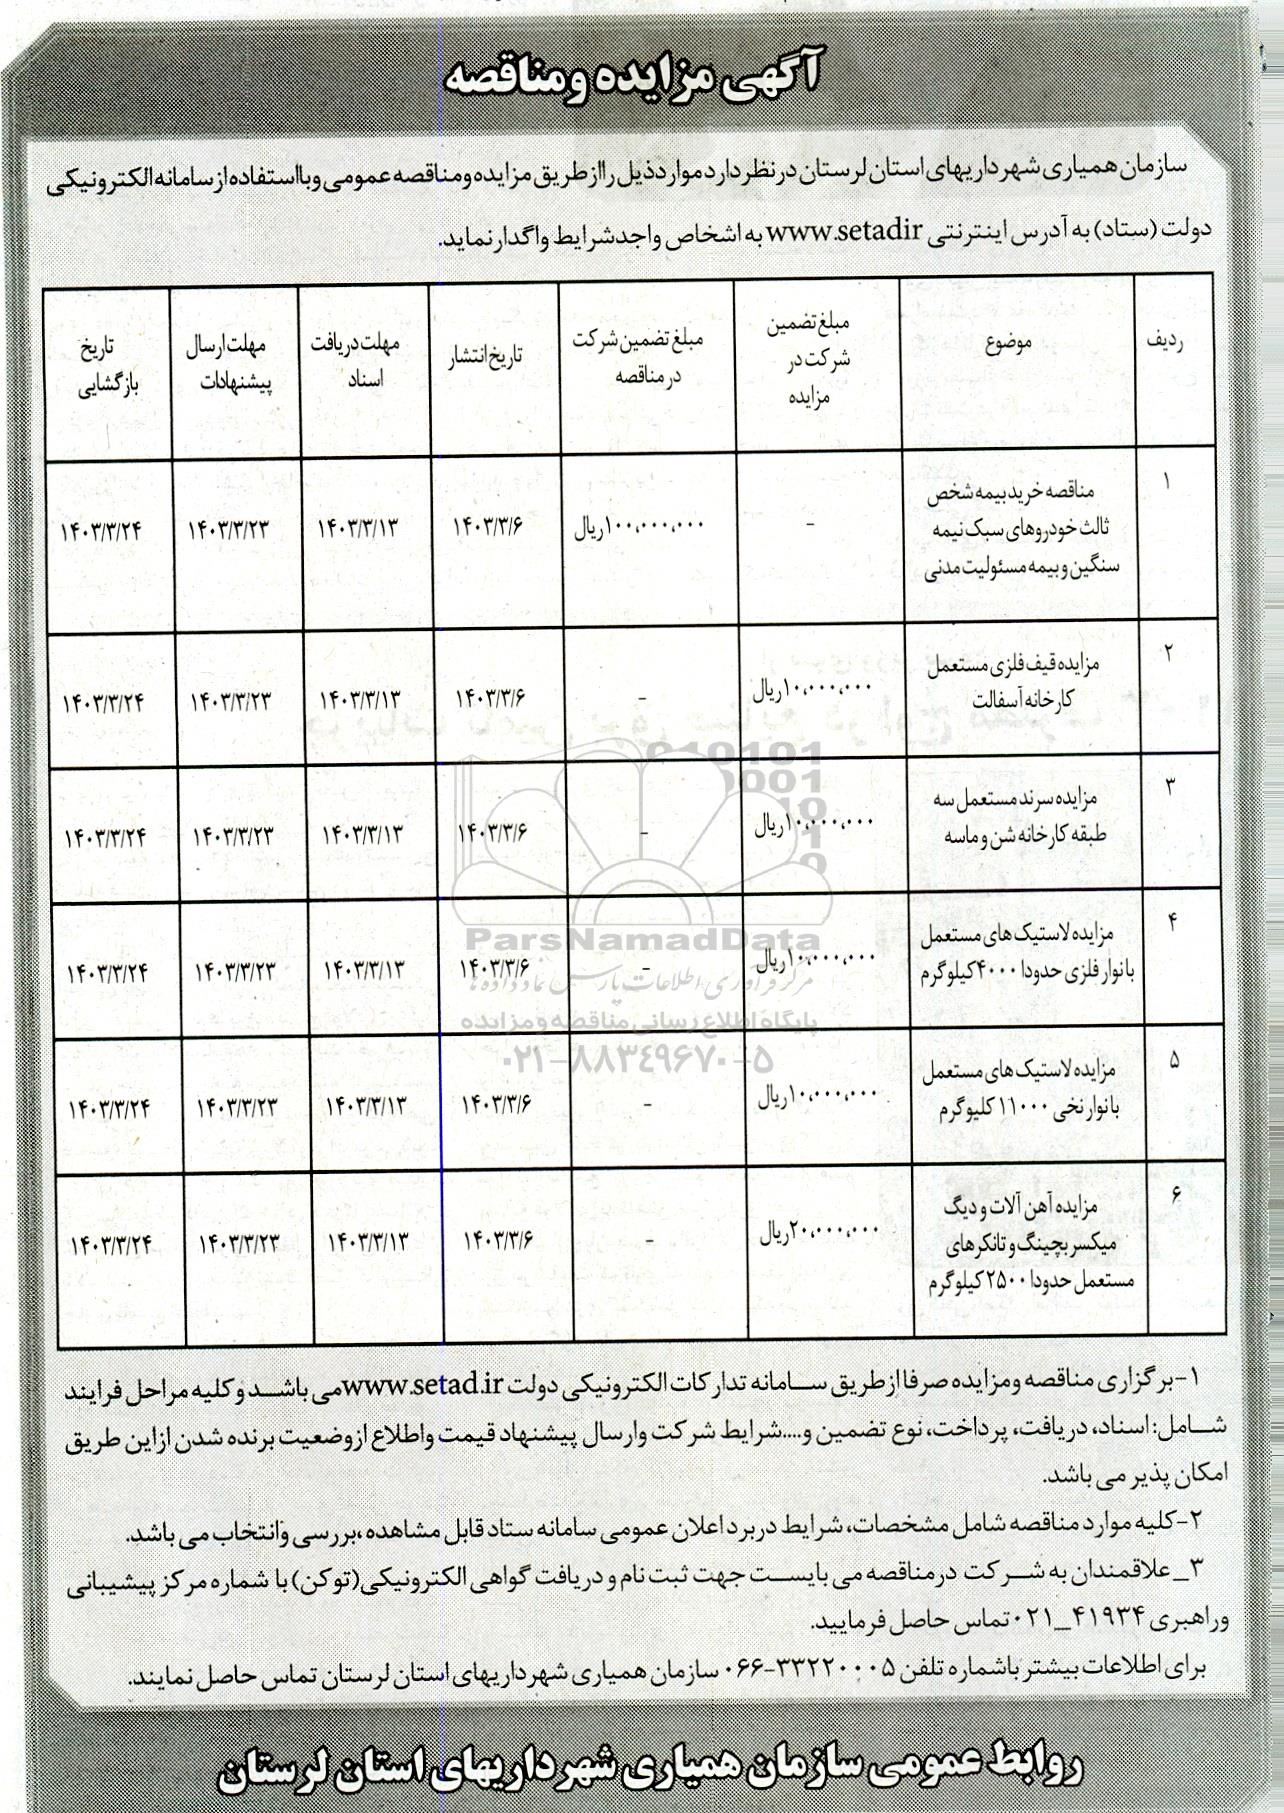 آگهی مزایده ومناقصه
سازمان همیاری شهرداریهای استان لرستان درنظردارد مواردذیل رااز طریق مزایده ومناقصه عمومی وبااستفاده از سامانه الکترونیکی
دولت (ستاد) به آدرس اینترنتی www.setadir به اشخاص واجدشرایط واگذار نماید.
ردیف | موضوع | مبلغ تضمین شرکت در مزایده | مبلغ تضمین شرکت در مناقصه | تاریخ انتشار | مهلت دریافت اسناد | مهلت ارسال پیشنهادات | تاریخ بازگشایی
۱ | مناقصه خرید بیمه شخص ثالث خودروهای سبک نیمه سنگین و بیمه مسئولیت مدنی | - | ۱۰۰،۰۰۰،۰۰۰ریال | ۱۴۰۳/۳/۶ | ۱۴۰۳/۳/۱۳ | ۱۴۰۳/۳/۲۳ | ۱۴۰۳/۳/۲۴
۲ | مزایده قیف فلزی مستعمل کارخانه آسفالت | ۱۰،۰۰۰،۰۰۰ریال | - | ۱۴۰۳/۳/۶ | ۱۴۰۳/۳/۱۳ | ۱۴۰۳/۳/۲۳ | ۱۴۰۳/۳/۲۴
۳ | مزایده سرند مستعمل سه طبقه کارخانه شن و ماسه | ۱۰،۰۰۰،۰۰۰ریال | - | ۱۴۰۳/۳/۶ | ۱۴۰۳/۳/۱۳ | ۱۴۰۳/۳/۲۳ | ۱۴۰۳/۳/۲۴
۴ | مزایده لاستیک های مستعمل با نوار فلزی حدودا ۴۰۰۰کیلوگرم | ۱۰،۰۰۰،۰۰۰ریال | - | ۱۴۰۳/۳/۶ | ۱۴۰۳/۳/۱۳ | ۱۴۰۳/۳/۲۳ | ۱۴۰۳/۳/۲۴
۵ | مزایده لاستیک های مستعمل با نوار نخی ۱۱۰۰۰ کلیوگرم | ۱۰،۰۰۰،۰۰۰ریال | - | ۱۴۰۳/۳/۶ | ۱۴۰۳/۳/۱۳ | ۱۴۰۳/۳/۲۳ | ۱۴۰۳/۳/۲۴
۶ | مزایده آهن آلات و دیگ میکسر بچینگ و تانکرهای مستعمل حدودا ۲۵۰۰کیلوگرم | ۲۰،۰۰۰،۰۰۰ریال | - | ۱۴۰۳/۳/۶ | ۱۴۰۳/۳/۱۳ | ۱۴۰۳/۳/۲۳ | ۱۴۰۳/۳/۲۴
ParsNamadData
مرکز فرآوری اطلاعات پارس نماد داده ها
پایگاه اطلاع رسانی مناقصه و مزایده
۰۲۱-۸۸۳۴۹۶۷۰-۵
۱-برگزاری مناقصه ومزایده صرفا از طریق سامانه تدارکات الکترونیکی دولت www.setad.irمی باشد و کلیه مراحل فرایند
شامل: اسناد، دریافت، پرداخت، نوع تضمین و....شرایط شرکت وارسال پیشنهاد قیمت واطلاع از وضعیت برنده شدن ازاین طریق
امکان پذیر می باشد.
۲-کلیه موارد مناقصه شامل مشخصات، شرایط دربرد اعلان عمومی سامانه ستاد قابل مشاهده ،بررسی وانتخاب می باشد.
۳_علاقمندان به شرکت درمناقصه می بایست جهت ثبت نام و دریافت گواهی الکترونیکی(توکن) با شماره مرکز پیشیبانی
وراهبری ۴۱۹۳۴_۰۲۱تماس حاصل فرمایید.
برای اطلاعات بیشتر باشماره تلفن ۳۳۲۲۰۰۰۵-۰۶۶ سازمان همیاری شهرداریهای استان لرستان تماس حاصل نمایند.
روابط عمومی سازمان همیاری شهرداریهای استان لرستان